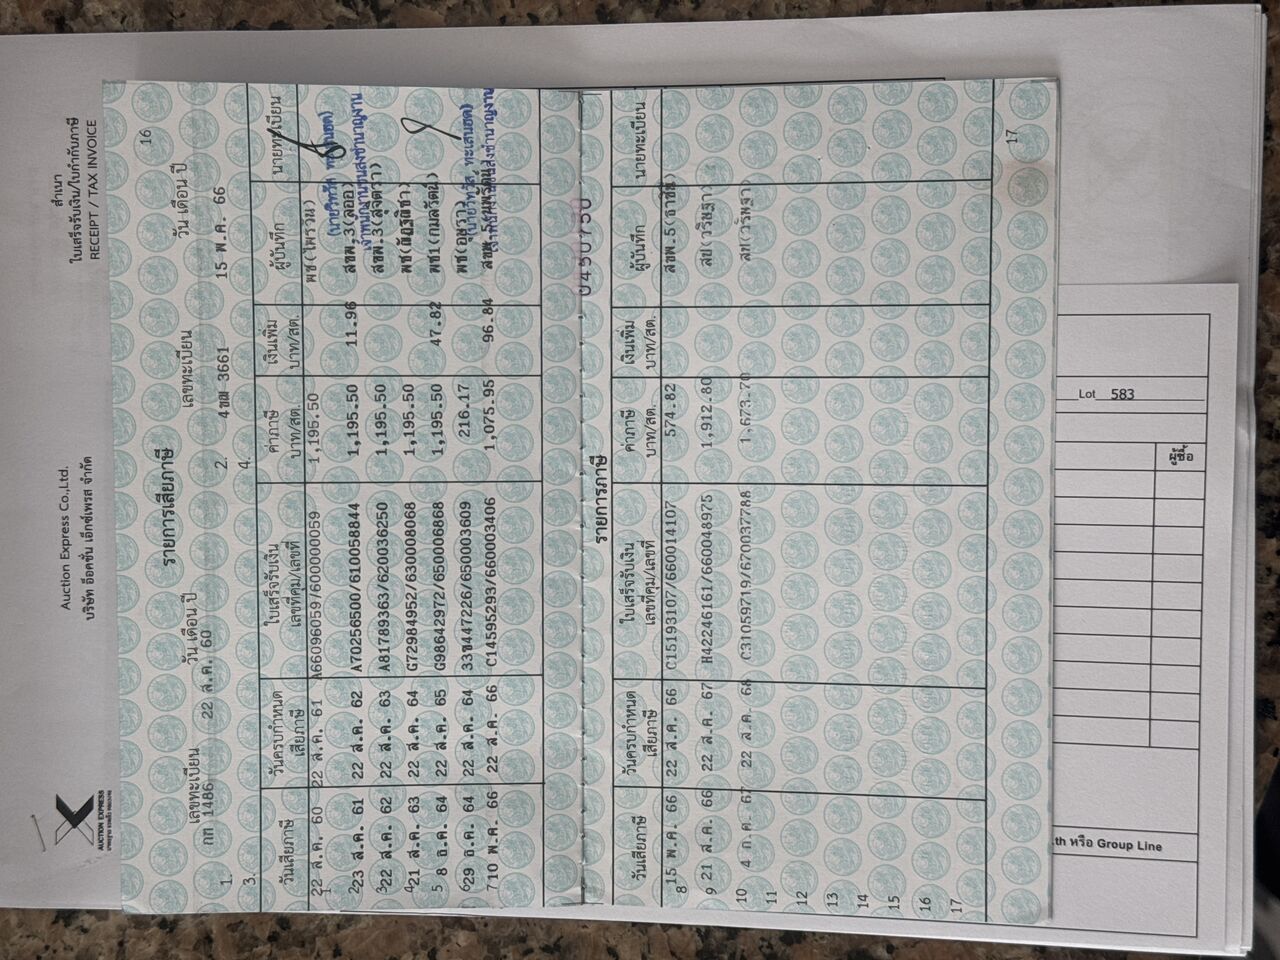 AUCTION EXPRESS
Auction Express Co.,Ltd.
บริษัท อ็อคชั่น เอ็กซ์เพรส จำกัด
สำเนา
ใบเสร็จรับเงิน/ใบกำกับภาษี
RECEIPT / TAX INVOICE
16
รายการเสียภาษี
เลขทะเบียน วัน เดือน ปี เลขทะเบียน วัน เดือน ปี
1. กท 1486 22 ส.ค. 60 2. 4ขฒ 3661 15 พ.ค. 66
3. 4.
วันเสียภาษี วันครบกำหนดเสียภาษี ใบเสร็จรับเงิน เล่มที่คุม/เลขที่ ค่าภาษี บาท/สต. เงินเพิ่ม บาท/สต. ผู้บันทึก นายทะเบียน
1 22 ส.ค. 60 22 ส.ค. 61 A66096059/600000059 1,195.50 พช(ไพรวน)
2 23 ส.ค. 61 22 ส.ค. 62 A70256500/610058844 1,195.50 11.96 สขพ.3(ลออ)
3 22 ส.ค. 62 22 ส.ค. 63 A81789363/620036250 1,195.50 สขพ.3(สุจิตรา)
4 21 ส.ค. 63 22 ส.ค. 64 G72984952/630008068 1,195.50
5 8 ธ.ค. 64 22 ส.ค. 65 G98642972/650006868 1,195.50 47.82 พช1(กมลรัตน์)
6 29 ธ.ค. 64 22 ส.ค. 64 33ข447226/650003609 216.17 พช(อมรา)
7 10 พ.ค. 66 22 ส.ค. 66 C14595293/660003406 1,075.95 96.84
0450750
รายการภาษี
วันเสียภาษี วันครบกำหนดเสียภาษี ใบเสร็จรับเงิน เล่มที่คุม/เลขที่ ค่าภาษี บาท/สต. เงินเพิ่ม บาท/สต. ผู้บันทึก นายทะเบียน
8 15 พ.ค. 66 22 ส.ค. 66 C15193107/660014107 574.82
9 21 ส.ค. 66 22 ส.ค. 67 H42246161/660048975 1,912.80 สป(วริษฐา)
10 4 ก.ค. 67 22 ส.ค. 68 C31059719/670037788 1,673.70 สป(วริษฐา)
11
12
13
14
15
16
17
17
Lot 583
ผู้ซื้อ
.th หรือ Group Line